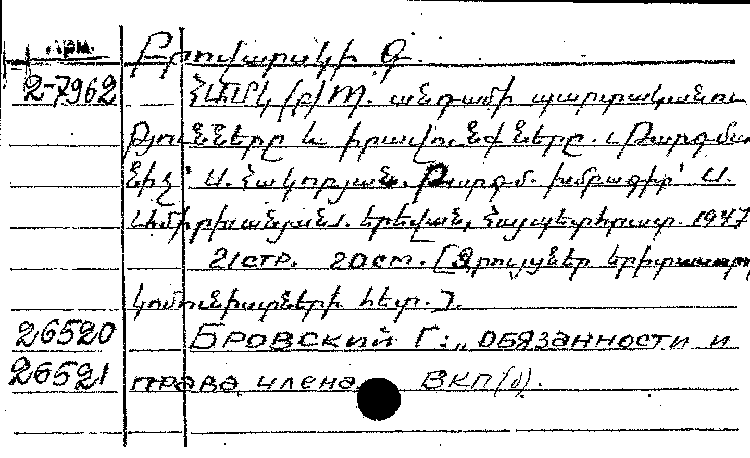 Արմ.
Բրովսկի Գ.
2-7962 ՀամԿ(բ)Պ. անդամի պարտականու
թյունները և իրավունքները. Թարգմա
նիչ՝ Ա. Հակոբյան. Թարգմ. խմբագիր՝ Ա.
Երևան, Հայպետհրատ. 1947
21стр. 20см. [Զրույցներ երիտասարդ
կոմունիստների հետ.].
26520 Бровский Г.: „Обязанности и
26521 права члена ВКП(б).